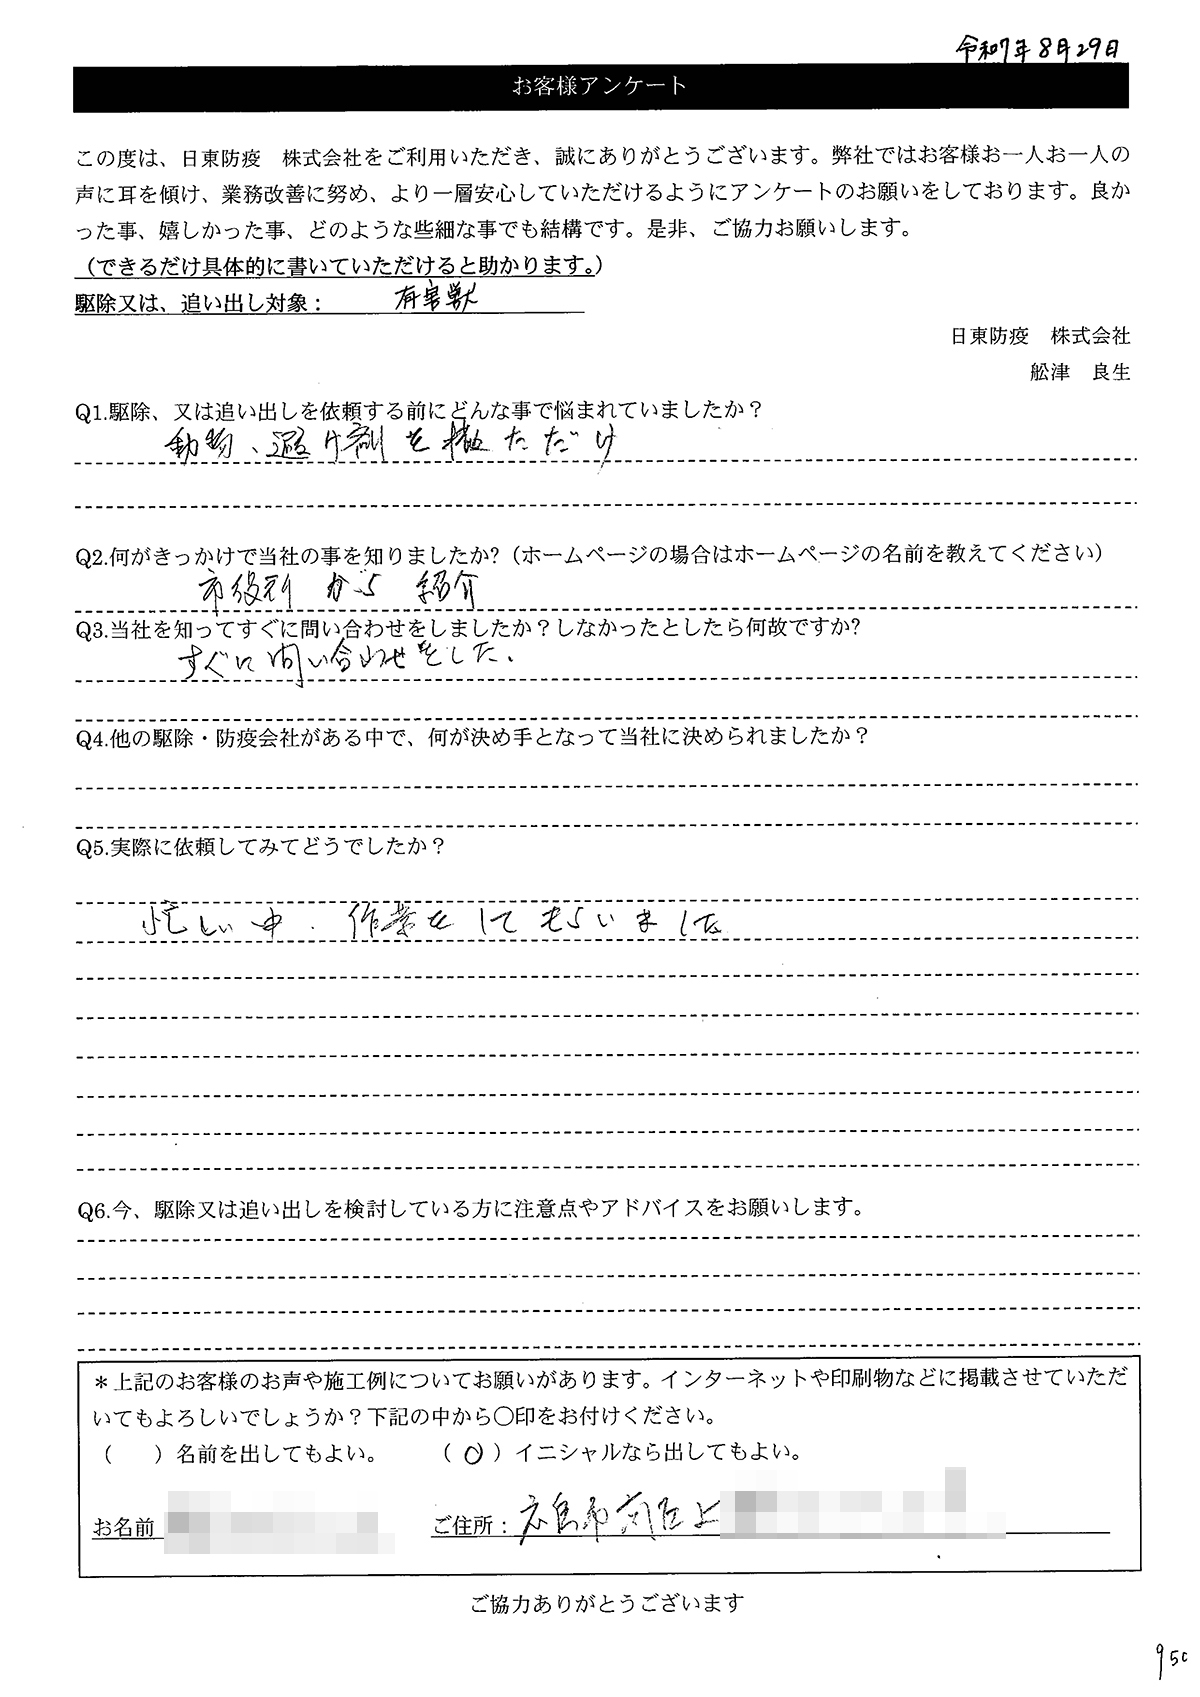 令和7年8月29日
お客様アンケート
この度は、日東防疫　株式会社をご利用いただき、誠にありがとうございます。弊社ではお客様お一人お一人の
声に耳を傾け、業務改善に努め、より一層安心していただけるようにアンケートのお願いをしております。良か
った事、嬉しかった事、どのような些細な事でも結構です。是非、ご協力お願いします。
（できるだけ具体的に書いていただけると助かります。）
駆除又は、追い出し対象： 有害獣
日東防疫　株式会社
舩津　良生
Q1.駆除、又は追い出しを依頼する前にどんな事で悩まれていましたか？
動物、避け剤を撒ただけ
Q2.何がきっかけで当社の事を知りましたか?（ホームページの場合はホームページの名前を教えてください）
市役所から 紹介
Q3.当社を知ってすぐに問い合わせをしましたか？しなかったとしたら何故ですか?
すぐに問い合わせをした.
Q4.他の駆除・防疫会社がある中で、何が決め手となって当社に決められましたか？
Q5.実際に依頼してみてどうでしたか？
忙しい中、作業をしてもらいました
Q6.今、駆除又は追い出しを検討している方に注意点やアドバイスをお願いします。
＊上記のお客様のお声や施工例についてお願いがあります。インターネットや印刷物などに掲載させていただ
いてもよろしいでしょうか？下記の中から〇印をお付けください。
（　　）名前を出してもよい。　（ 〇 ）イニシャルなら出してもよい。
お名前　ご住所：広島市南区上
ご協力ありがとうございます
950